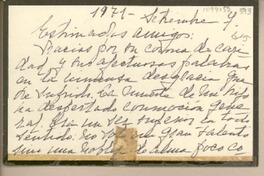 1971 - Setiembre 4
Estimados amigos:
Gracias por su corona de cari
dad, y sus afectuosas palabras
en la inmensa desgracia que
he sufrido. La muerte de ese hijo
ha despertado conmoción gene
ral. Era un ser superior en todo
sentido. No solo un gran talento
sino una nobleza de alma poco co